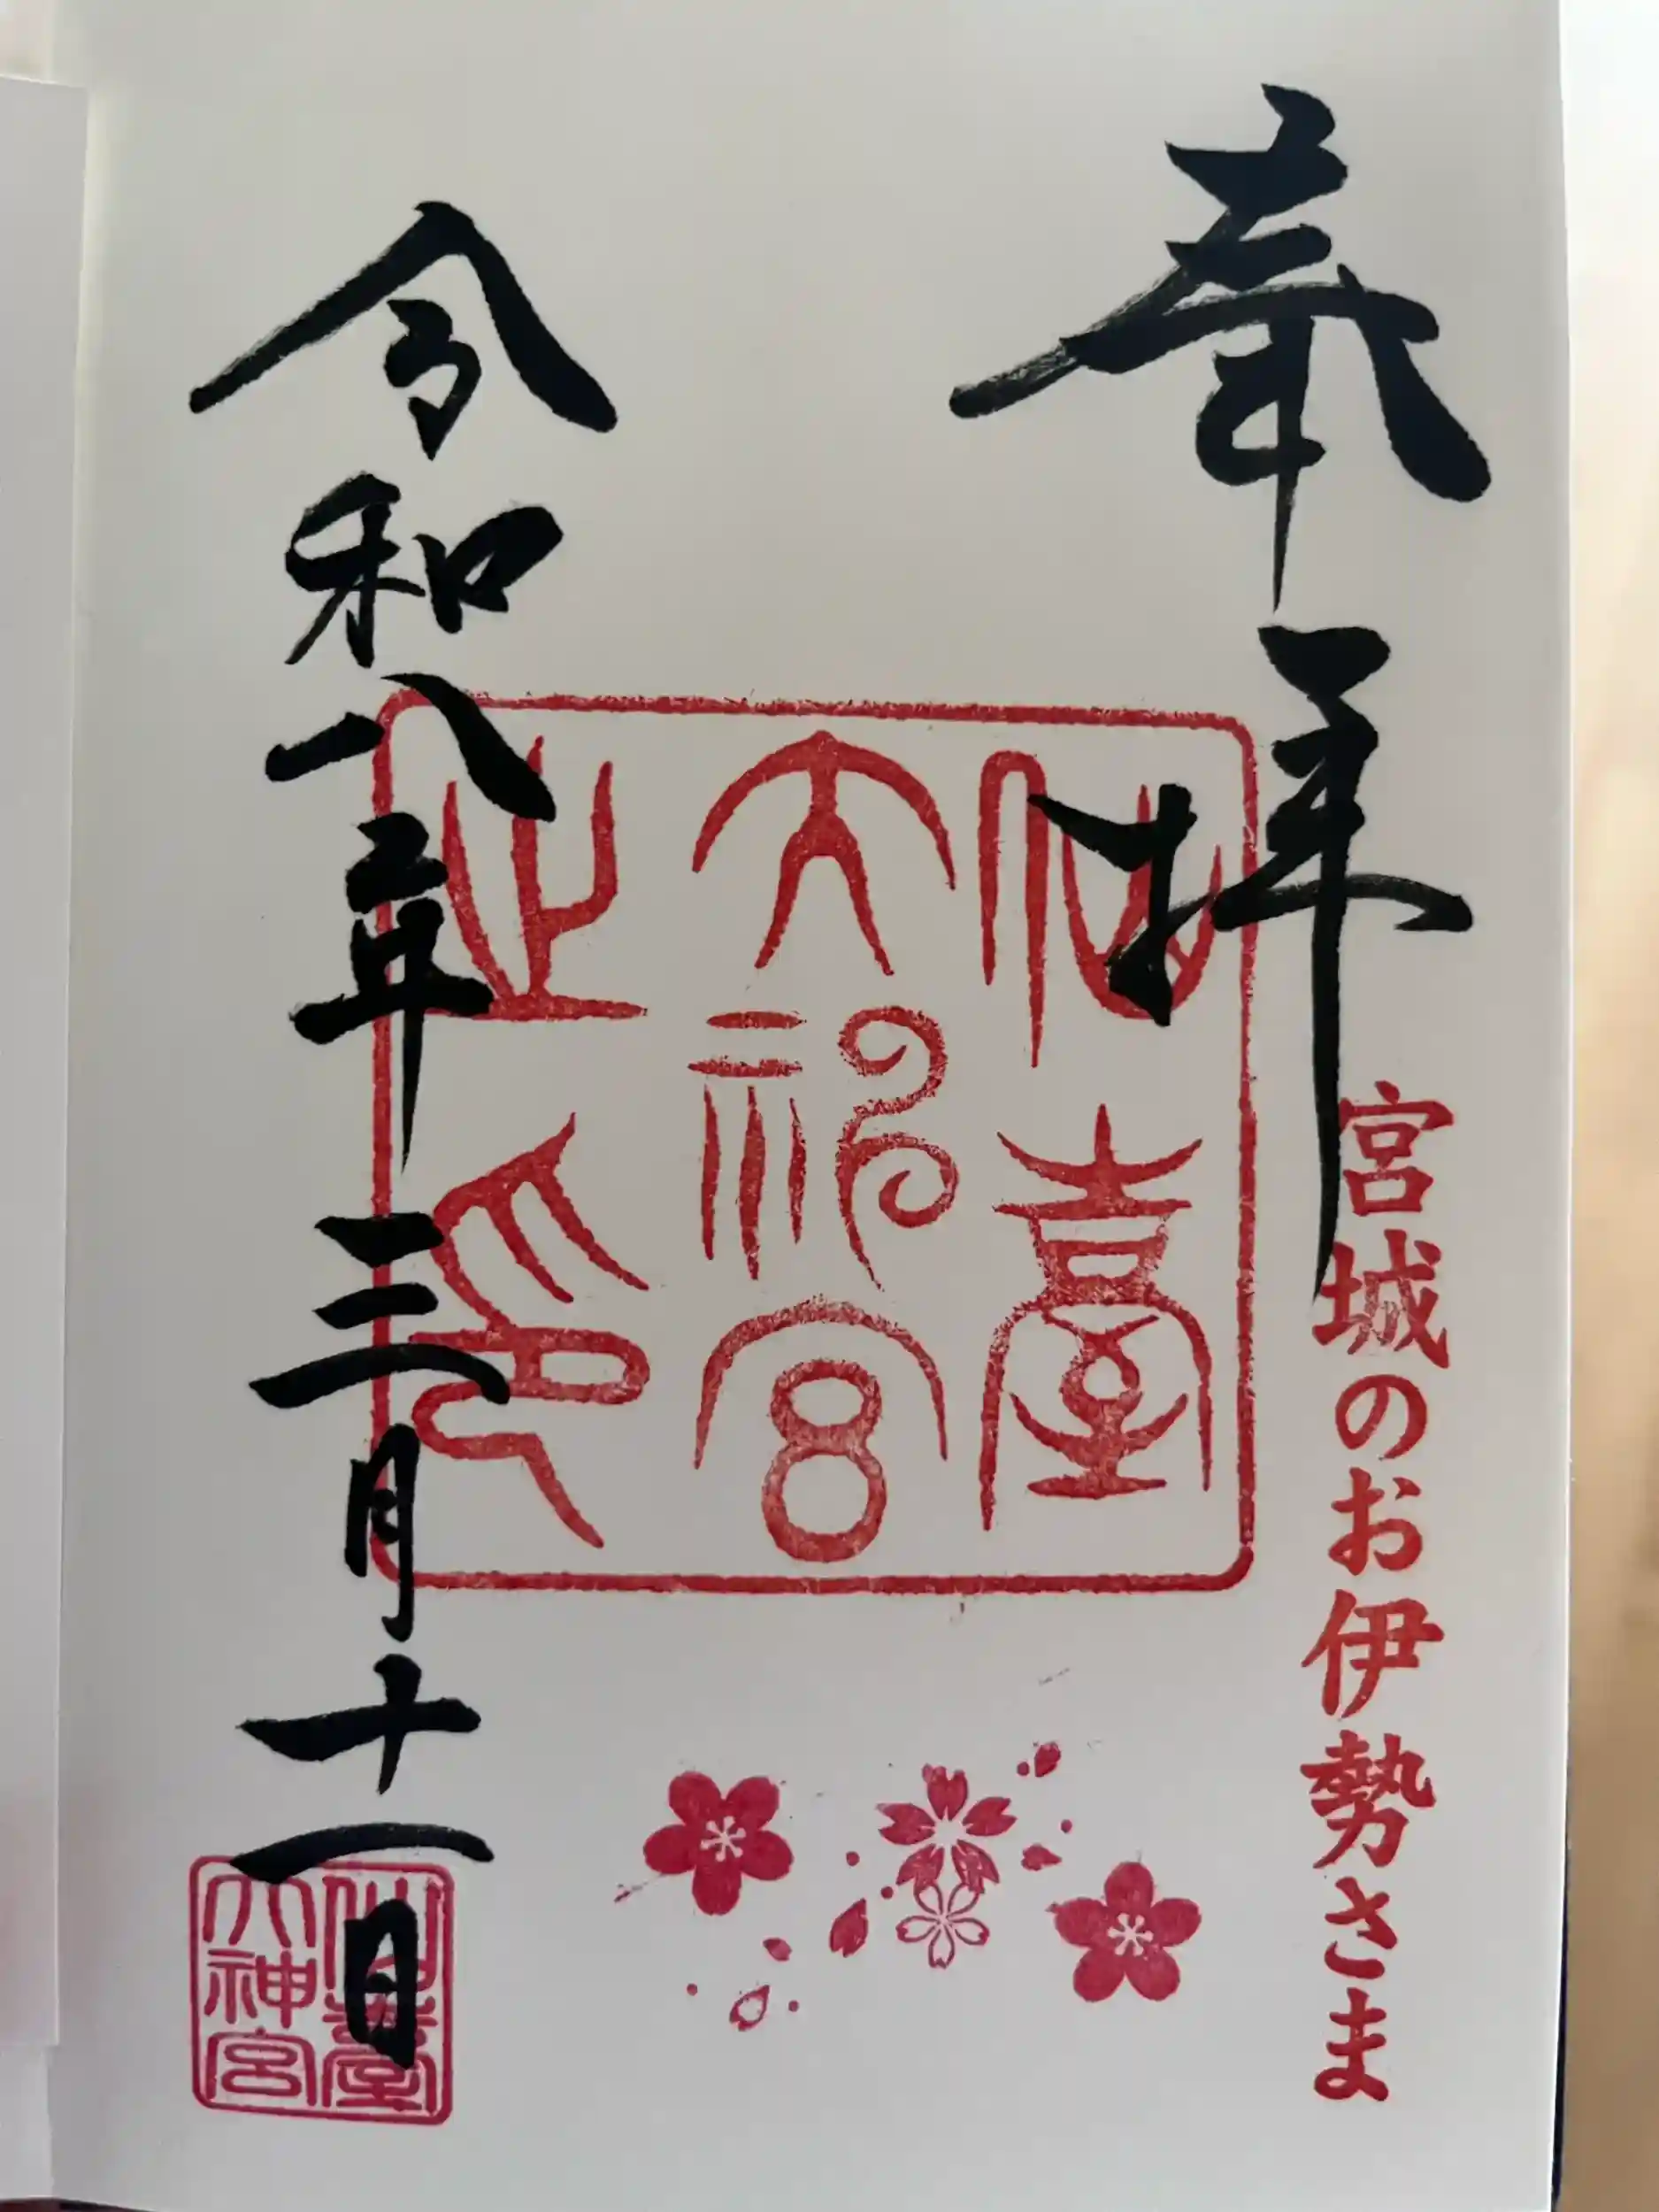 奉拝
宮城のお伊勢さま
仙臺
大神宮
之印
令和八年三月十一日
仙臺
大神宮